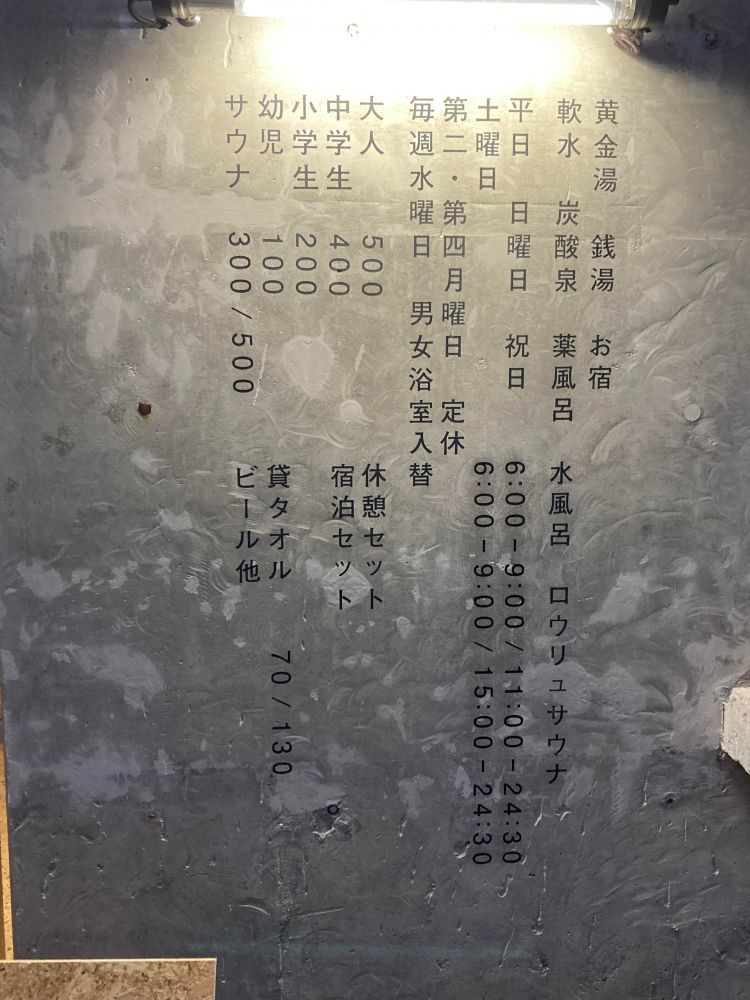 黄金湯 銭湯 お宿
軟水 炭酸泉 薬風呂 水風呂 ロウリュサウナ
平日 日曜日 祝日 6:00-9:00/11:00-24:30
土曜日 6:00-9:00/15:00-24:30
第二・第四月曜日 定休
毎週水曜日 男女浴室入替
大人 500 休憩セット
中学生 400 宿泊セット
小学生 200
幼児 100 貸タオル 70/130
サウナ 300/500 ビール他